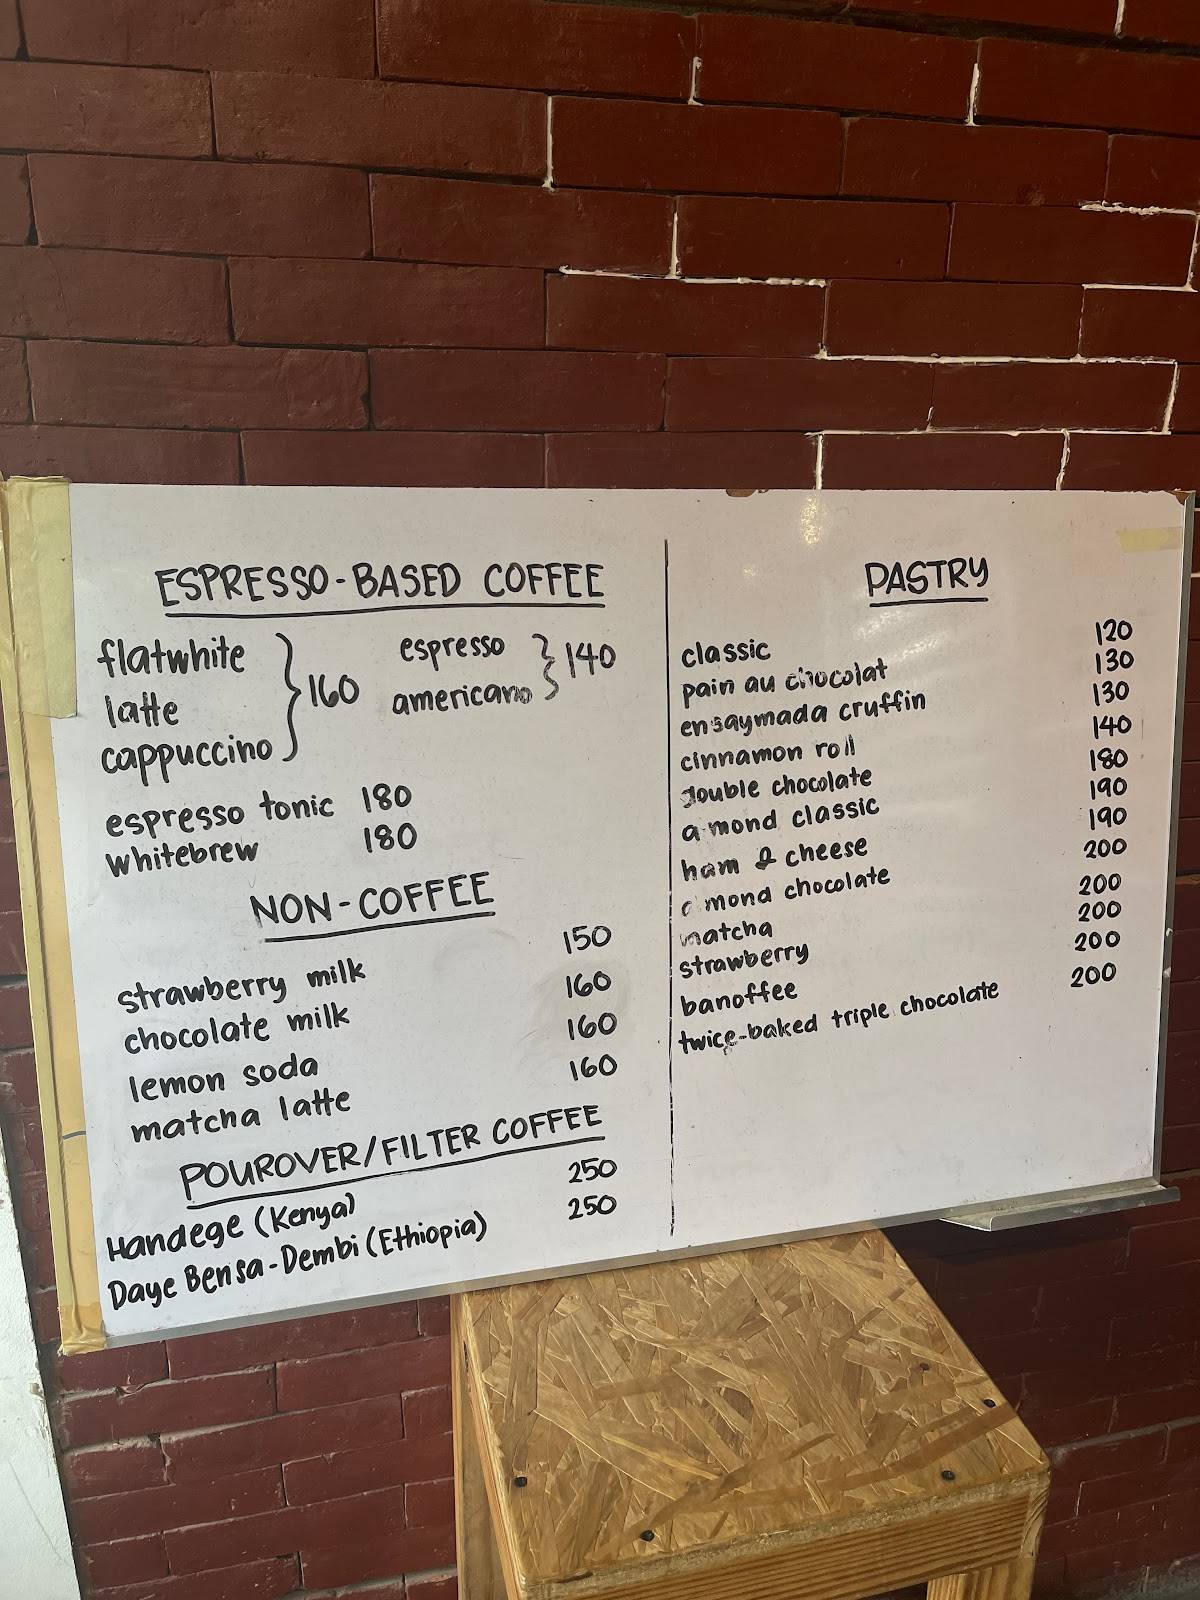 ESPRESSO-BASED COFFEE
flatwhite
latte
cappuccino
160
espresso
americano
140
espresso tonic 180
whitebrew 180
NON-COFFEE
strawberry milk 150
chocolate milk 160
lemon soda 160
matcha latte 160
POUROVER/FILTER COFFEE
Handege (Kenya) 250
Daye Bensa-Dembi (Ethiopia) 250
PASTRY
classic 120
pain au chocolat 130
ensaymada cruffin 130
cinnamon roll 140
double chocolate 180
almond classic 190
ham & cheese 190
almond chocolate 200
matcha 200
strawberry 200
banoffee 200
twice-baked triple chocolate 200